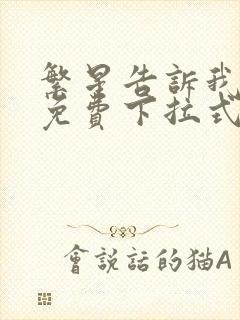 繁星告訴我
免費下拉式
會說話的猫A